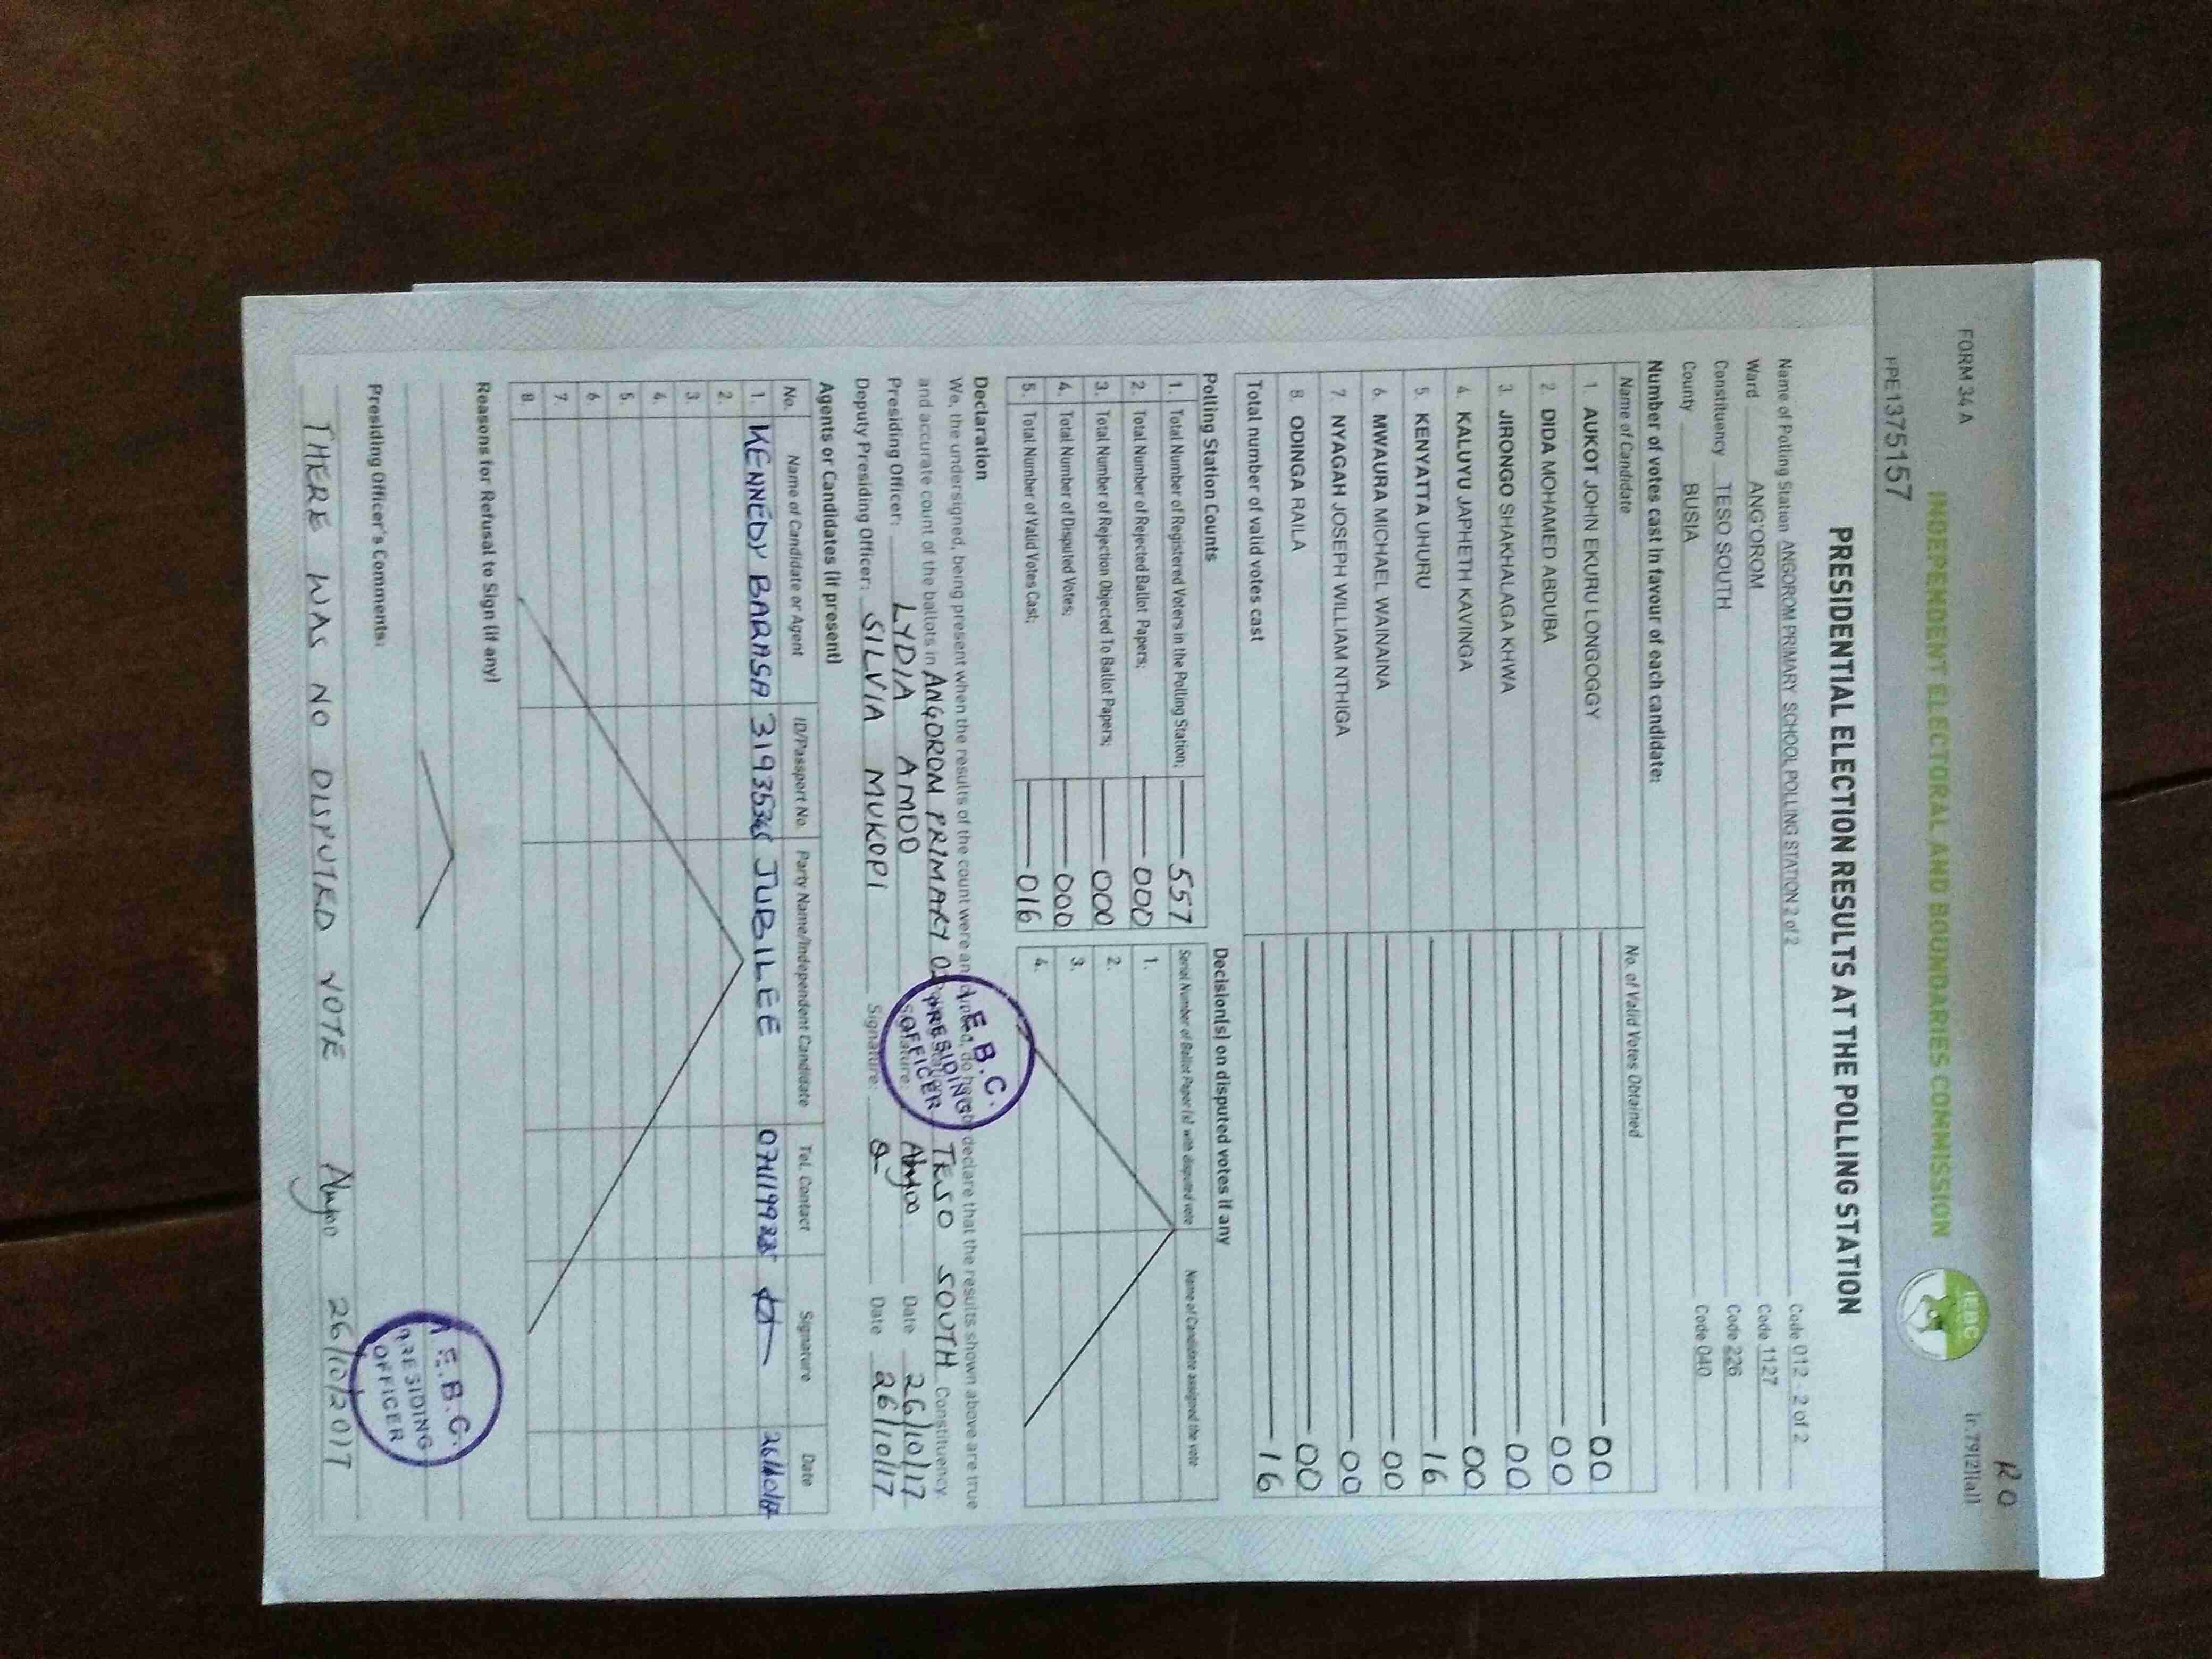 RO
FORM 34 A
[r.79(2)(a)]
INDEPENDENT ELECTORAL AND BOUNDARIES COMMISSION
IEBC
PPE1375157
PRESIDENTIAL ELECTION RESULTS AT THE POLLING STATION
Name of Polling Station ANGOROM PRIMARY SCHOOL POLLING STATION 2 of 2 Code 012 - 2 of 2
Ward ANG'OROM Code 1127
Constituency TESO SOUTH Code 226
County BUSIA Code 040
Number of votes cast in favour of each candidate:
Name of Candidate No. of Valid Votes Obtained
1. AUKOT JOHN EKURU LONGOGGY 00
2. DIDA MOHAMED ABDUBA 00
3. JIRONGO SHAKHALAGA KHWA 00
4. KALUYU JAPHETH KAVINGA 00
5. KENYATTA UHURU 16
6. MWAURA MICHAEL WAINAINA 00
7. NYAGAH JOSEPH WILLIAM NTHIGA 00
8. ODINGA RAILA 00
Total number of valid votes cast 16
Polling Station Counts
1. Total Number of Registered Voters in the Polling Station; 557
2. Total Number of Rejected Ballot Papers; 000
3. Total Number of Rejection Objected To Ballot Papers; 000
4. Total Number of Disputed Votes; 000
5. Total Number of Valid Votes Cast; 016
Decision(s) on disputed votes if any
Serial Number of Ballot Paper (s) with disputed vote Name of Candidate assigned the vote
1.
2.
3.
4.
Declaration
We, the undersigned, being present when the results of the count were announced, do hereby declare that the results shown above are true
and accurate count of the ballots in ANGOROM PRIMARY TESO SOUTH Constituency.
Presiding Officer: LYDIA AMOO Signature: Date 26/10/17
Deputy Presiding Officer: SILVIA MUKOPI Signature: Date 26/10/17
E.B.C.
PRESIDING
OFFICER
Agents or Candidates (if present)
No. Name of Candidate or Agent ID/Passport No. Party Name/Independent Candidate Tel. Contact Signature Date
1. KENNEDY BARASA JUBILEE
2.
3.
4.
5.
6.
7.
8.
Reasons for Refusal to Sign (if any)
Presiding Officer's Comments:
I.E.B.C.
PRESIDING
OFFICER
THERE WAS NO DISPUTED VOTE 26/10/2017